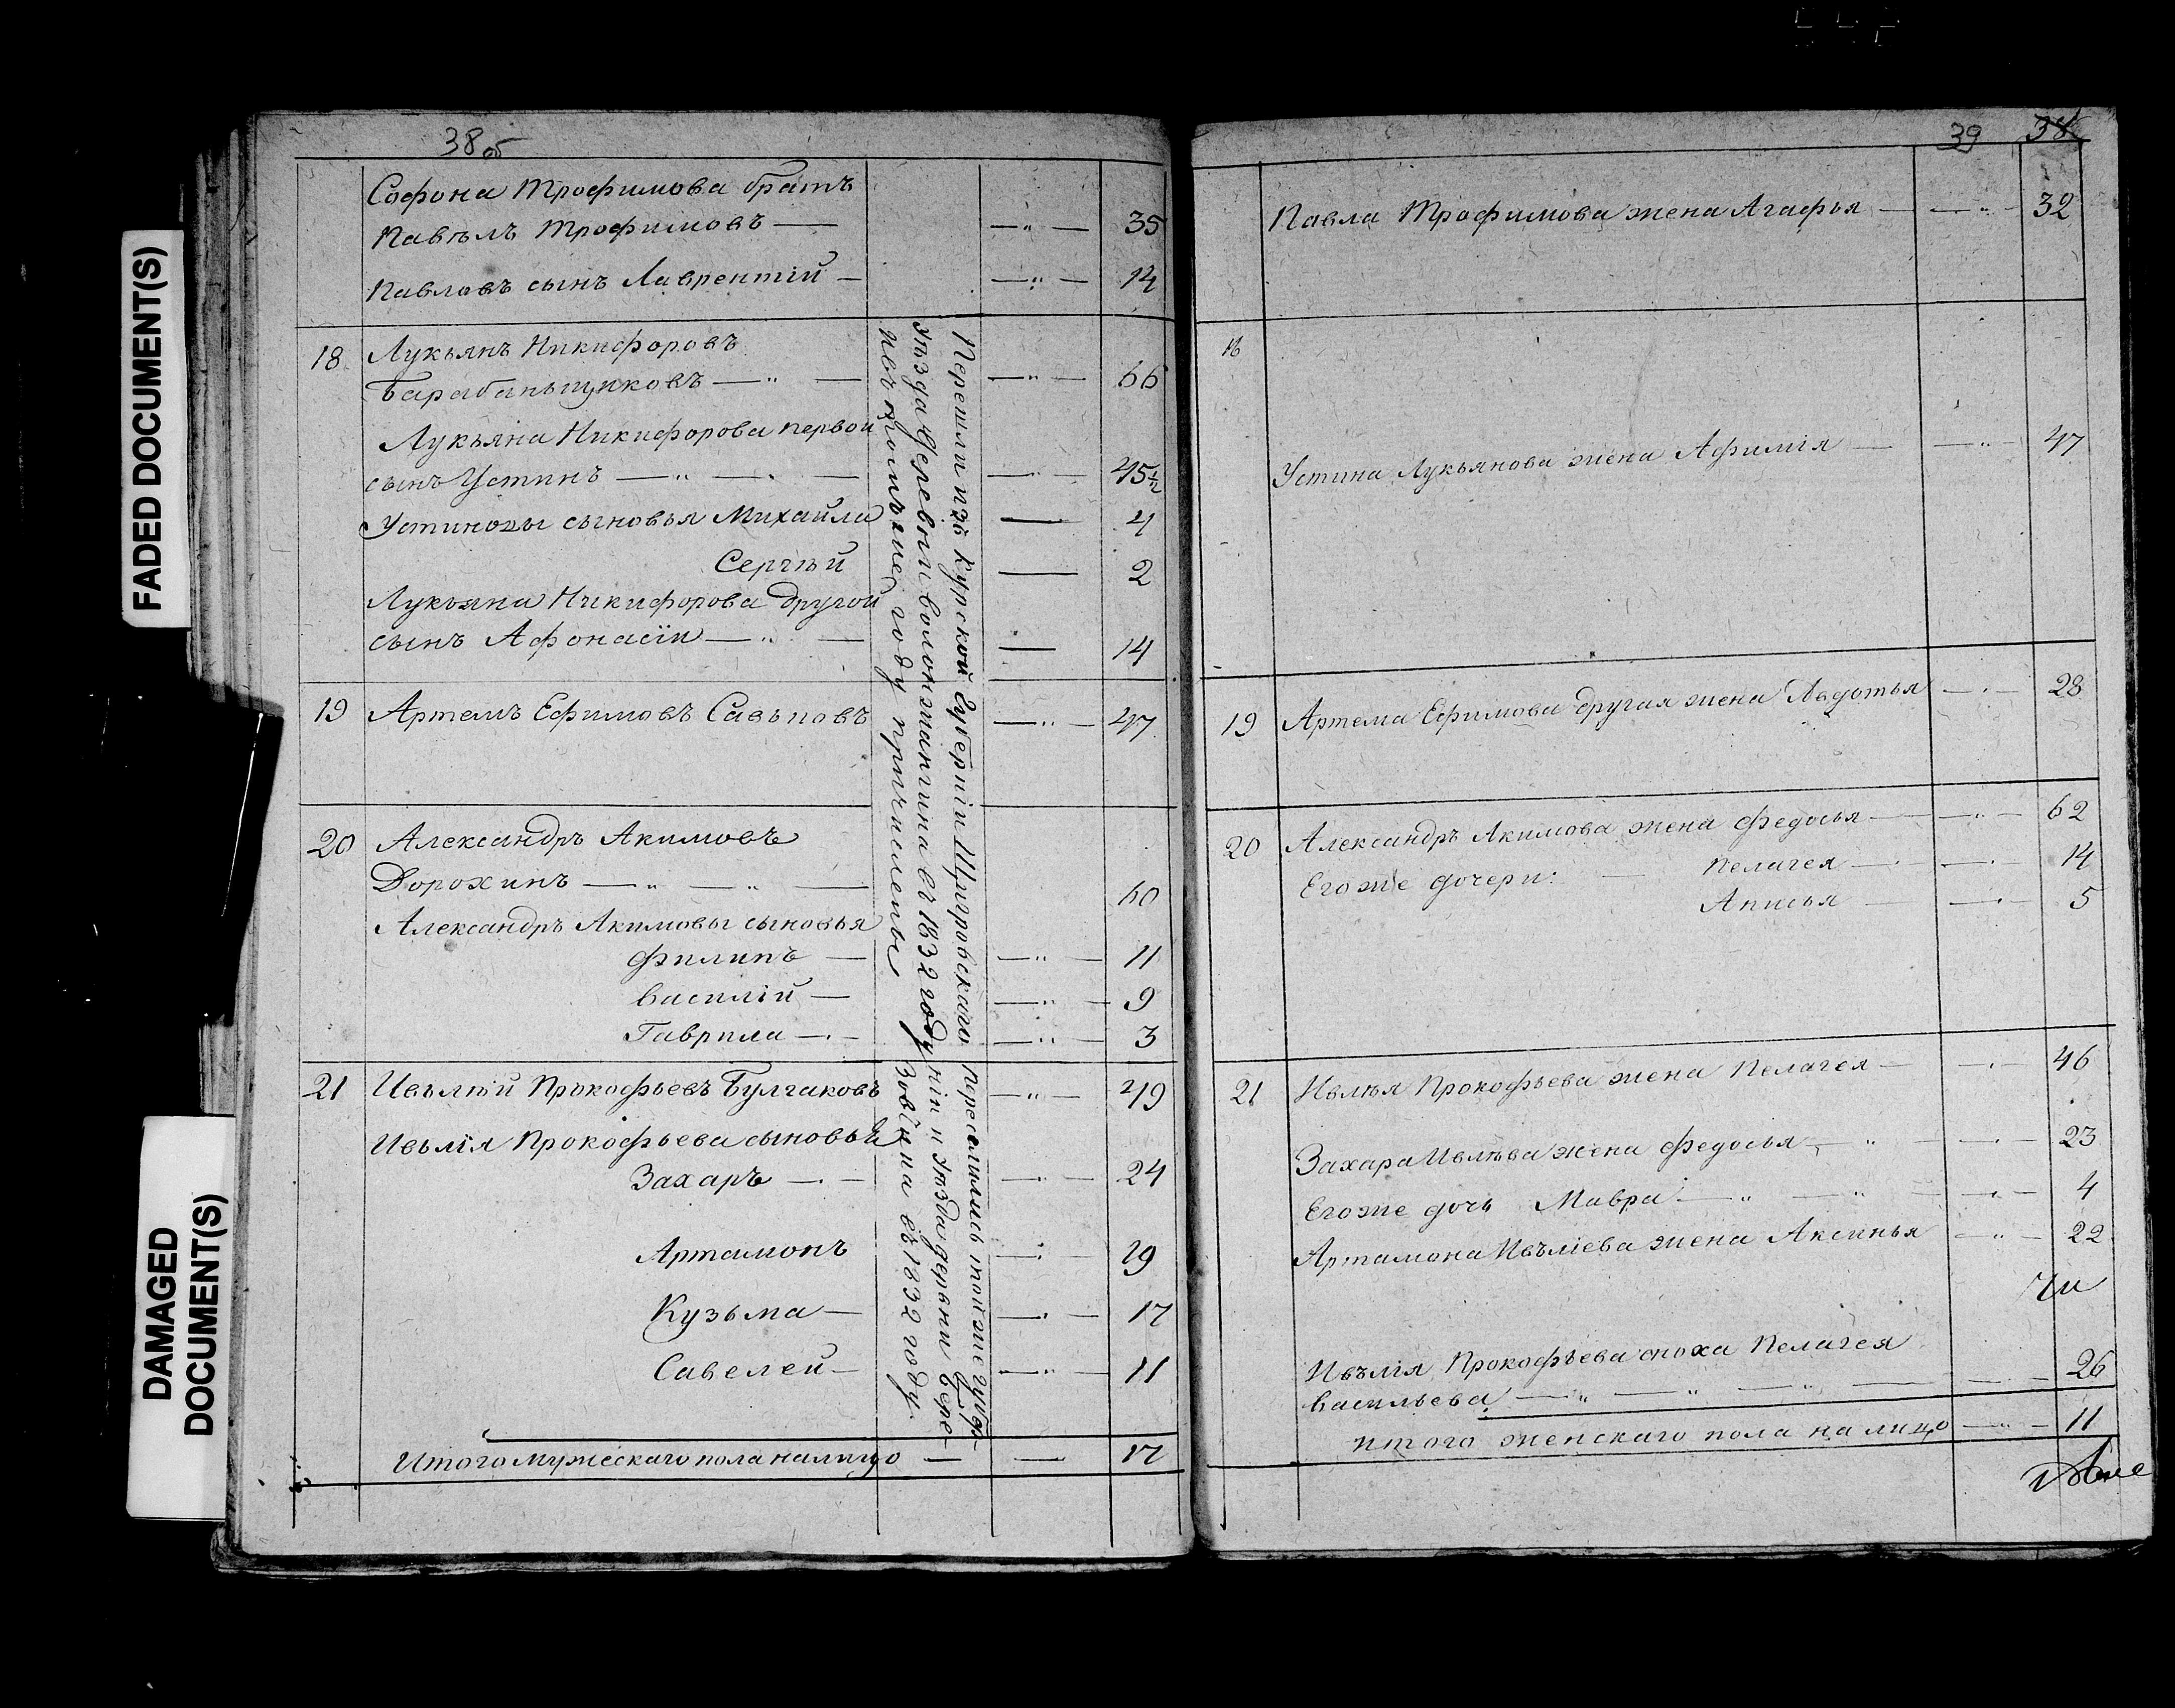 38 об
Софона Трофимова братъ
Павълъ Трофимовъ — — " — 35
Павловъ сынъ Лаврентій — — " — 14
18 Лукьянъ Никифоровъ
Барабаньщиковъ — " — — " — 66
Лукьяна Никифорова первой
сынъ Устинъ — " — " — — " — 45½
Устиновы сыновья Михайла — 4
Сергѣй — 2
Лукьяна Никифорова другой
сынъ Афонасіи — " — — 14
19 Артемъ Ефимовъ Савъновъ — " — 47
20 Александръ Акимовъ
Дорохинъ — " — " — 60
Александръ Акимовы сыновья
Филипъ — — " — 11
Василій — — " — 9
Гаврила — " — — " — 3
21 Ивълѣй Прокофьевъ Булгаковъ — " — 49
Ивълія Прокофьева сыновья
Захаръ — " — — " — 24
Артамонъ — " — 19
Кузьма — — " — 17
Савелей — — " — 11
Итого мужескаго пола налицо — — 17
Перешли изъ Курской Губерніи Щигровскаго
уѣзда деревни воложанчина въ 1832 году
году причислены
переселились той же губер-
ніи и уѣзда деревни Бере-
зовки на въ 1832 году
39 38
Павла Трофимова жена Агафья — — " — 32
18
Устина Лукьянова жена Афимія — — " — 47
19 Артема Ефимова другая жена Авдотья — " — 28
20 Александръ Акимова жена Федосья — — " — 62
Его же дочери: — Пелагея — — " — 14
Анисья — — " — 5
21 Ивлѣя Прокофьева жена Пелагея — — " — 46
Захара Ивлѣва жена Федосья — " — — " — 23
Его же дочь Мавра — " — " — — " — 4
Артамона Ивъліева жена Аксинья — " — 22
Ивълія Прокофьева сноха Пелагея
Васильева — " — " — " — — 26
итого женскаго пола на лицо — " — 11
FADED DOCUMENT(S)
DAMAGED
DOCUMENT(S)